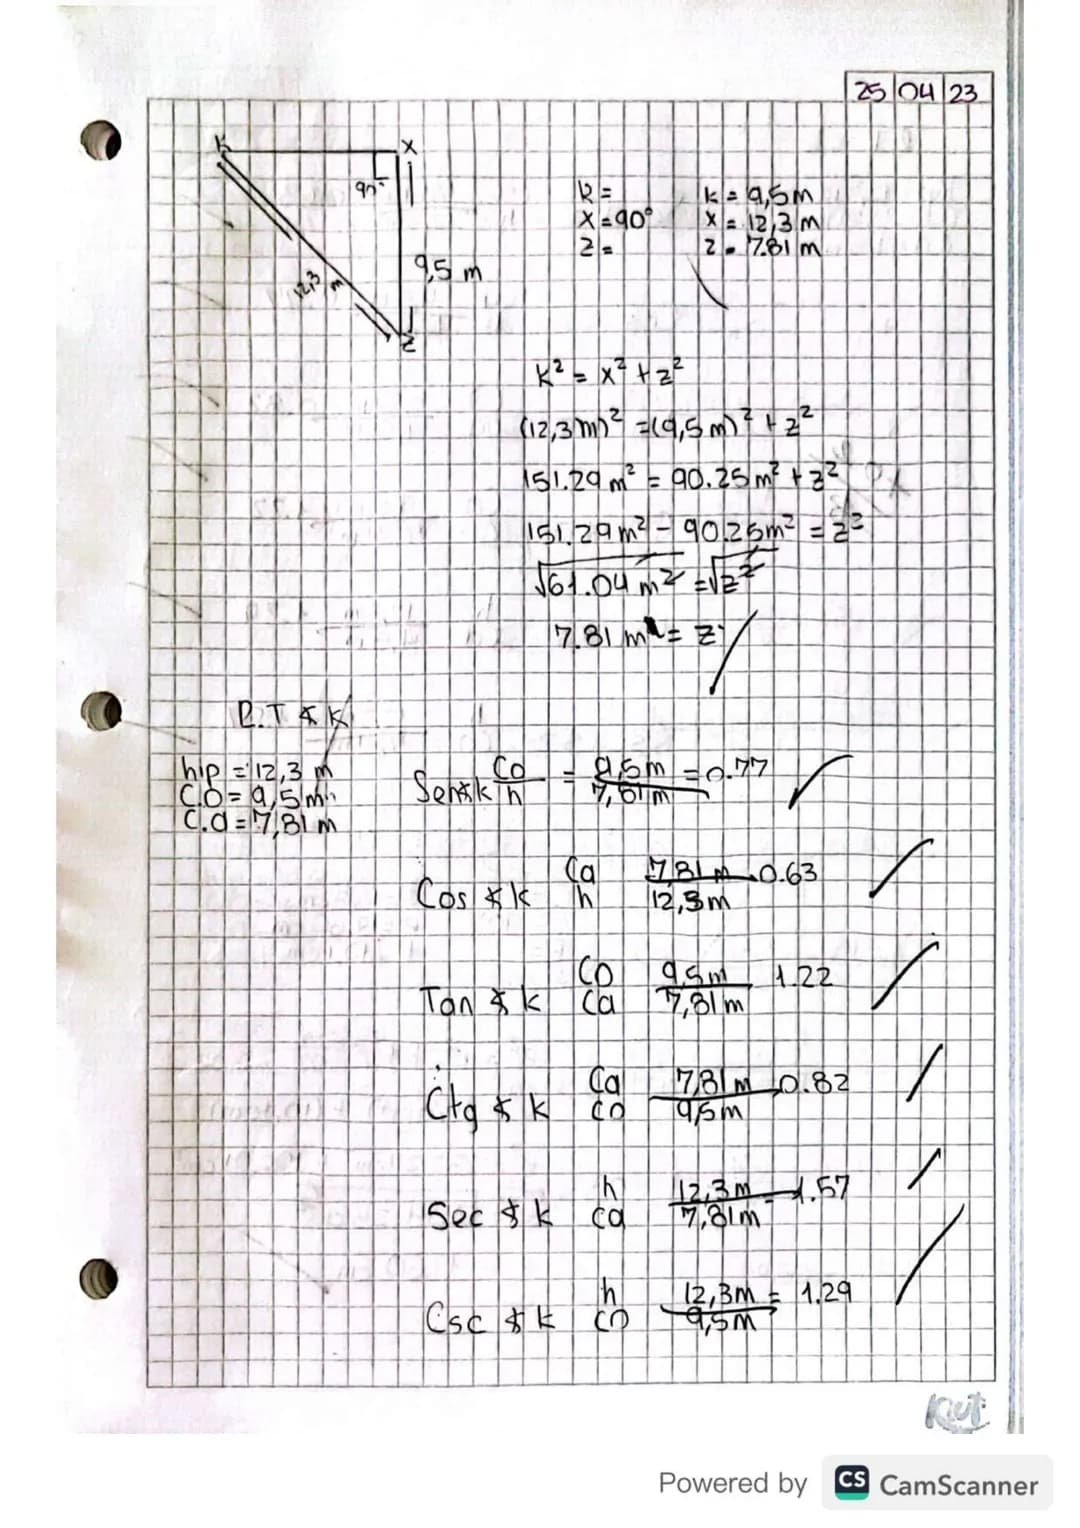 25 04 23
K X
90°
12,3 m
9,5 m
Z
K =
X = 90°
Z =
k = 9,5 m
x = 12,3 m
z = 7.81 m
k² = x² + z²
(12,3 m)² = (9,5 m)² + z²
151.29 m² = 90.25 m² + z²
151.29 m² - 90.25 m² = z²
√61.04 m² = √z²
7.81 m = z
R.T ∡ K
hip = 12,3 m
C.O = 9,5 m
C.a = 7,81 m
Sen ∡ k Co/h = 9,5 m/7,81 m = 0.77
Cos ∡ k Ca/h 7,81 m/12,3 m 0.63
Tan ∡ k CO/Ca 9,5 m/7,81 m 1.22
Ctg ∡ k Ca/co 7,81 m/9,5 m 0.82
Sec ∡ k h/ca 12,3 m/7,81 m = 1.57
Csc ∡ k h/co 12,3 m/9,5 m = 1.29
Kut
Powered by CS CamScanner